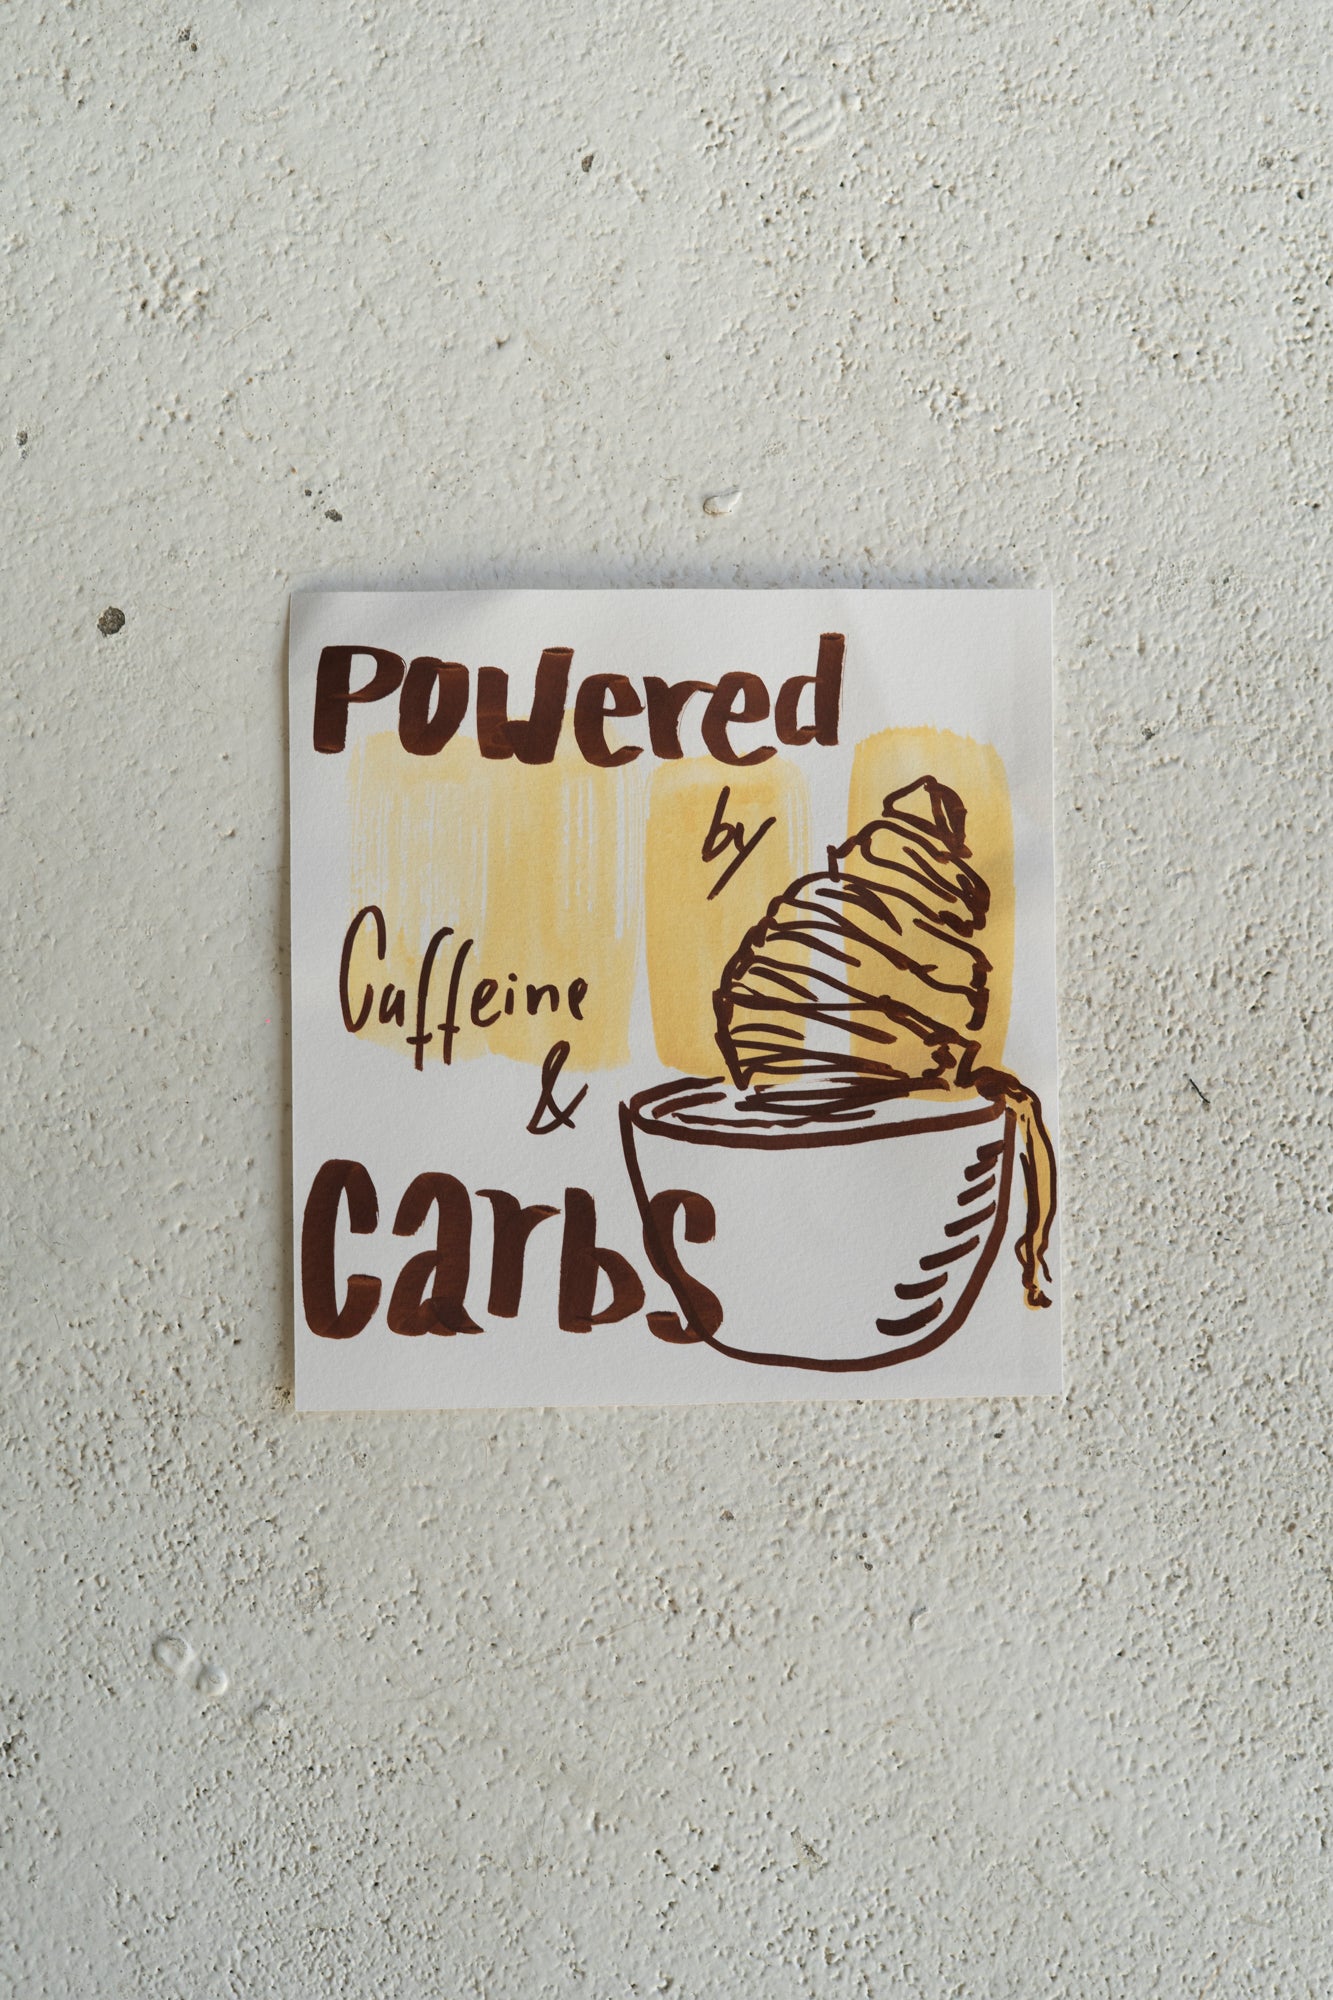 Powered
by
Caffeine
&
Carbs